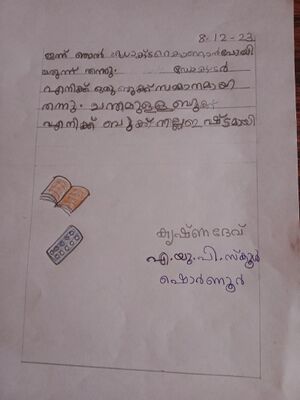 8-12-23
ഇന്ന് ഞാൻ ഡോക്ടറെകാണാൻപോയി
മരുന്ന് തന്നു. ഡോക്ടർ
എനിക്ക് ഒരുബുക്ക് സമ്മാനമായി
തന്നു. ചന്തമുള്ള ബുക്
എനിക്ക് ബുക് നല്ലഇഷ്ടമായി
കൃഷ്ണദേവ്
എ.യു.പി.സ്കൂൾ
ഷൊർണൂർ